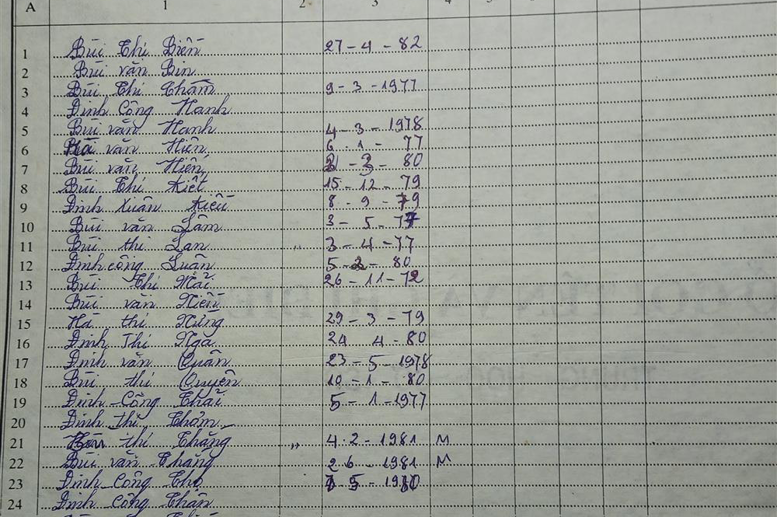 A 1 2 3 4
1 Bùi Thị Biển 27 - 4 - 82
2 Bùi văn Bin
3 Bùi Thị Chăm 9 - 3 - 1977
4 Đinh Công Hanh
5 Bùi văn Hanh 4 - 3 - 1978
6 Hà văn Hiên 6 - 1 - 77
7 Bùi văn Hiến - 80
8 Bùi Thị Kiết 15 - 12 - 79
9 Đinh Xuân Kiều 8 - 9 - 79
10 Bùi văn Lâm 3 - 5 - 77
11 Bùi thị Lan " 3 - 4 - 77
12 Đinh công Luân 5 - 2 - 80
13 Bùi Thị Mai 26 - 11 - 72
14 Bùi văn
15 Hà thị 29 - 3 - 79
16 Đinh Thị Nga 24 4 - 80
17 Đinh văn Quân 23 - 5 - 1978
18 Bùi thị Quyên 10 - 1 - 80
19 Đinh Công Thái 5 - 1 - 1977
20 Đinh thị Thảm
21 thị Thăng " 4 - 2 - 1981 M
22 Bùi văn Thăng 2 6 - 1981 M
23 Đinh Công Thọ 5 -
24 Đinh Công Thân